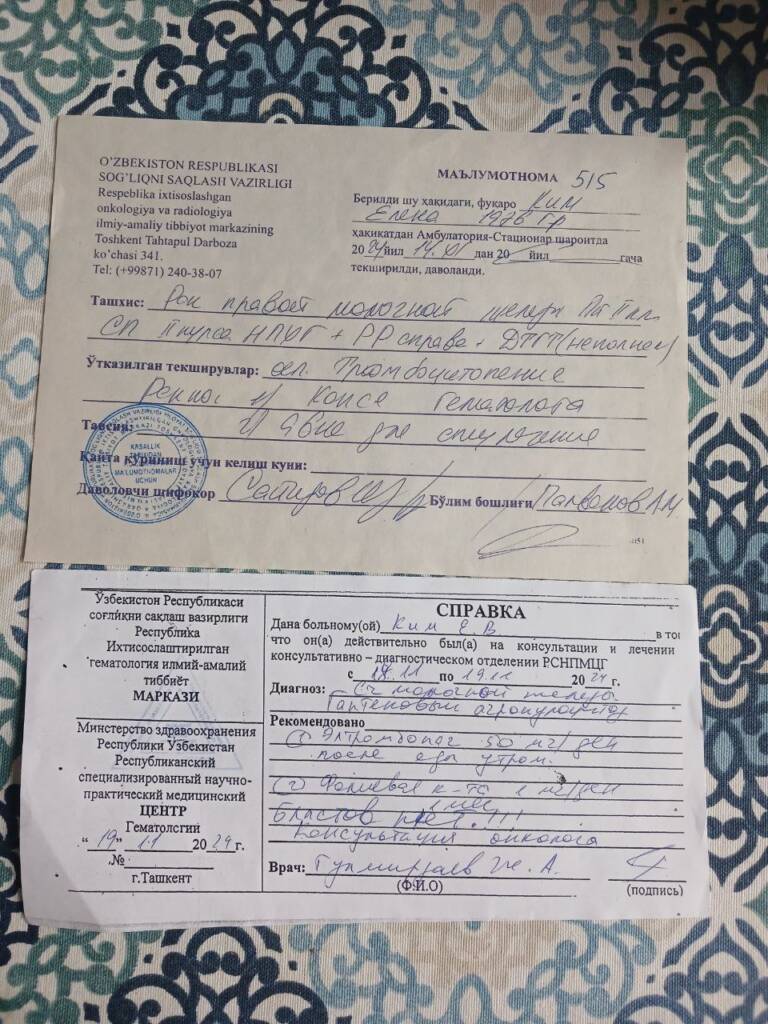 O'ZBEKISTON RESPUBLIKASI
SOG'LIQNI SAQLASH VAZIRLIGI
Respeblika ixtisoslashgan
onkologiya va radiologiya
ilmiy-amaliy tibbiyot markazining
Toshkent Tahtapul Darboza
ko'chasi 341.
Tel: (+99871) 240-38-07
МАЪЛУМОТНОМА 515
Берилди шу ҳақидаги, фуқаро Ким
Елена 1976 гр
ҳақиқатдан Амбулатория-Стационар шароитда
2024йил 14.XI дан 20 йил гача
текширилди, даволанди.
Ташхис: Рак правой молочной железы
СП II курса НПХТ + РР справа + ДТГТ (неполная)
Ўтказилган текширувлар: Тромбоцитопение
Реком Конс гематолога
Тавсия: Явка
KASALLIK
MA'LUMOTNOMALAR
UCHUN
Қайта кўриниш учун келиш куни:
Даволовчи шифокор Бўлим бошлиғи
Ўзбекистон Республикаси
соғлиқни сақлаш вазирлиги
Республика
Ихтисослаштирилган
гематология илмий-амалий
тиббиёт
МАРКАЗИ
Минстерство здравоохранения
Республики Узбекистан
Республиканский
специализированный научно-
практический медицинский
ЦЕНТР
Гематологий
"19" 11 2024г.
№
г.Ташкент
СПРАВКА
Дана больному(ой) Ким Е.В в том
что он(а) действительно был(а) на консультации и лечении
консультативно – диагностическом отделении РСНПМЦГ
с 18.11 по 19.11 2024 г.
Диагноз: Cч молочной железы
Гаптеновый агранулоцитоз
Рекомендовано
① Элтромбопаг 50 мг/ден
после еды утром.
② Фолиевая к-та 1 мг/ден
1 мес
Бластов нет!!!
Консультация онколога
Врач:
(Ф.И.О)
(подпись)